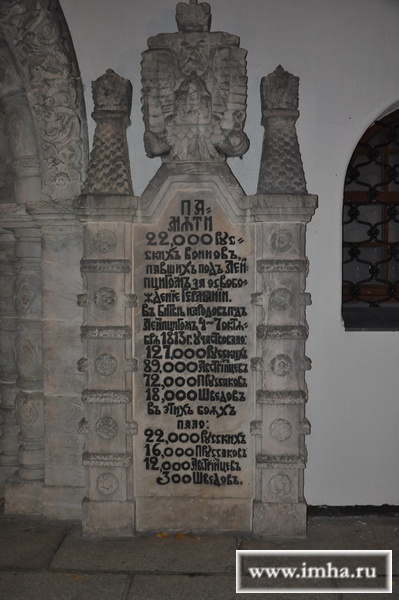 ПА=
МЯТИ
22,000 РУС=
СКИХЪ ВОИНОВЪ,
ПАВШИХЪ ПОДЪ ЛЕЙ=
ПЦИГОМЪ ЗА ОСВОБО=
ЖДЕНІЕ ГЕРМАНІИ.
ВЪ БИТВѢ НАРОДОВЪ ПОДЪ
ЛЕЙПЦИГОМЪ 4–7 ОКТЯБ=
РЯ 1813 г. УЧАСТВОВАЛО:
127,000 РУССКИХЪ
89,000 АВСТРІЙЦЕВЪ
72,000 ПРУССАКОВЪ
18,000 ШВЕДОВЪ
ВЪ ЭТИХЪ БОЯХЪ
ПАЛО:
22,000 РУССКИХЪ
16,000 ПРУССАКОВЪ
12,000 АВСТРІЙЦЕВЪ
300 ШВЕДОВЪ.
www.imha.ru